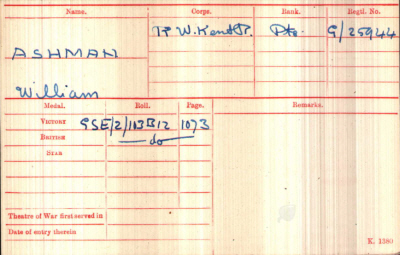 Name. Corps. Rank. Regtl. No.
R. W. Kent R. Pte. G/25944
ASHMAN
William
Medal. Roll. Page. Remarks.
VICTORY GSE/2/113B12 1073
BRITISH do
STAR
Theatre of War first served in
Date of entry therein
K. 1380